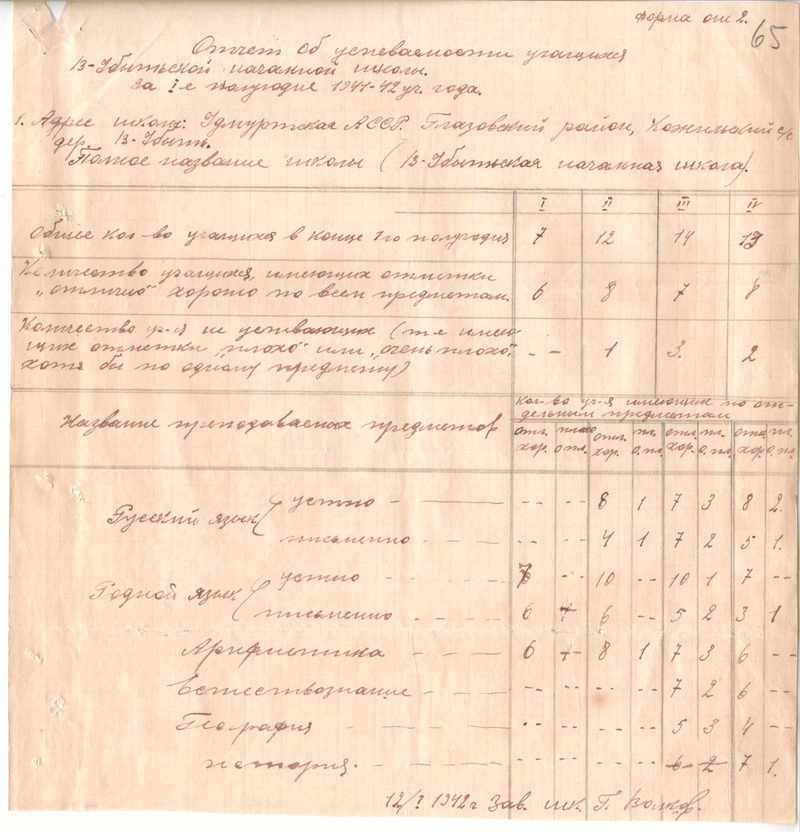 форма от 2.
65
Отчет об успеваемости учащихся
В-Убытьской начальной школы.
За I-е полугодие 1941-42 уч. года.
1. Адрес школы: Удмуртская АССР. Глазовский район, Кожильский с/с
дер. В-Убыть.
Полное название школы (В-Убытьская начальная школа).
I II III IV
Общее кол-во учащихся в конце 1го полугодия 7 12 14 13
Количество учащихся, имеющих отметки
„отлично" хорошо по всем предметам. 6 8 7 8
Количество уч-ся не успевающих (т-е имею-
щих отметки „плохо" или „очень плохо",
хотя бы по одному предмету) -- 1 3. 2
Кол-во уч-ся имеющих по от-
дельным предметам
Название преподаваемых предметов
отл. плохо отл. пл. отл. пл. отл. пл.
хор. о пл. хор. о. пл. хор. о. пл. хор. о. пл.
Русский язык устно -- -- 8 1 7 3 8 2.
письменно -- -- 4 1 7 2 5 1.
Родной язык устно 7 -- 10 -- 10 1 7 --
письменно 6 + 6 -- 5 2 3 1
Арифметика 6 + 8 1 7 3 6 --
Естествознание -- -- -- -- 7 2 6 --
География -- -- -- -- 5 3 4 --
история. -- -- -- -- 6 2 7 1.
12/I 1942 г Зав. шк. Г. Волков.